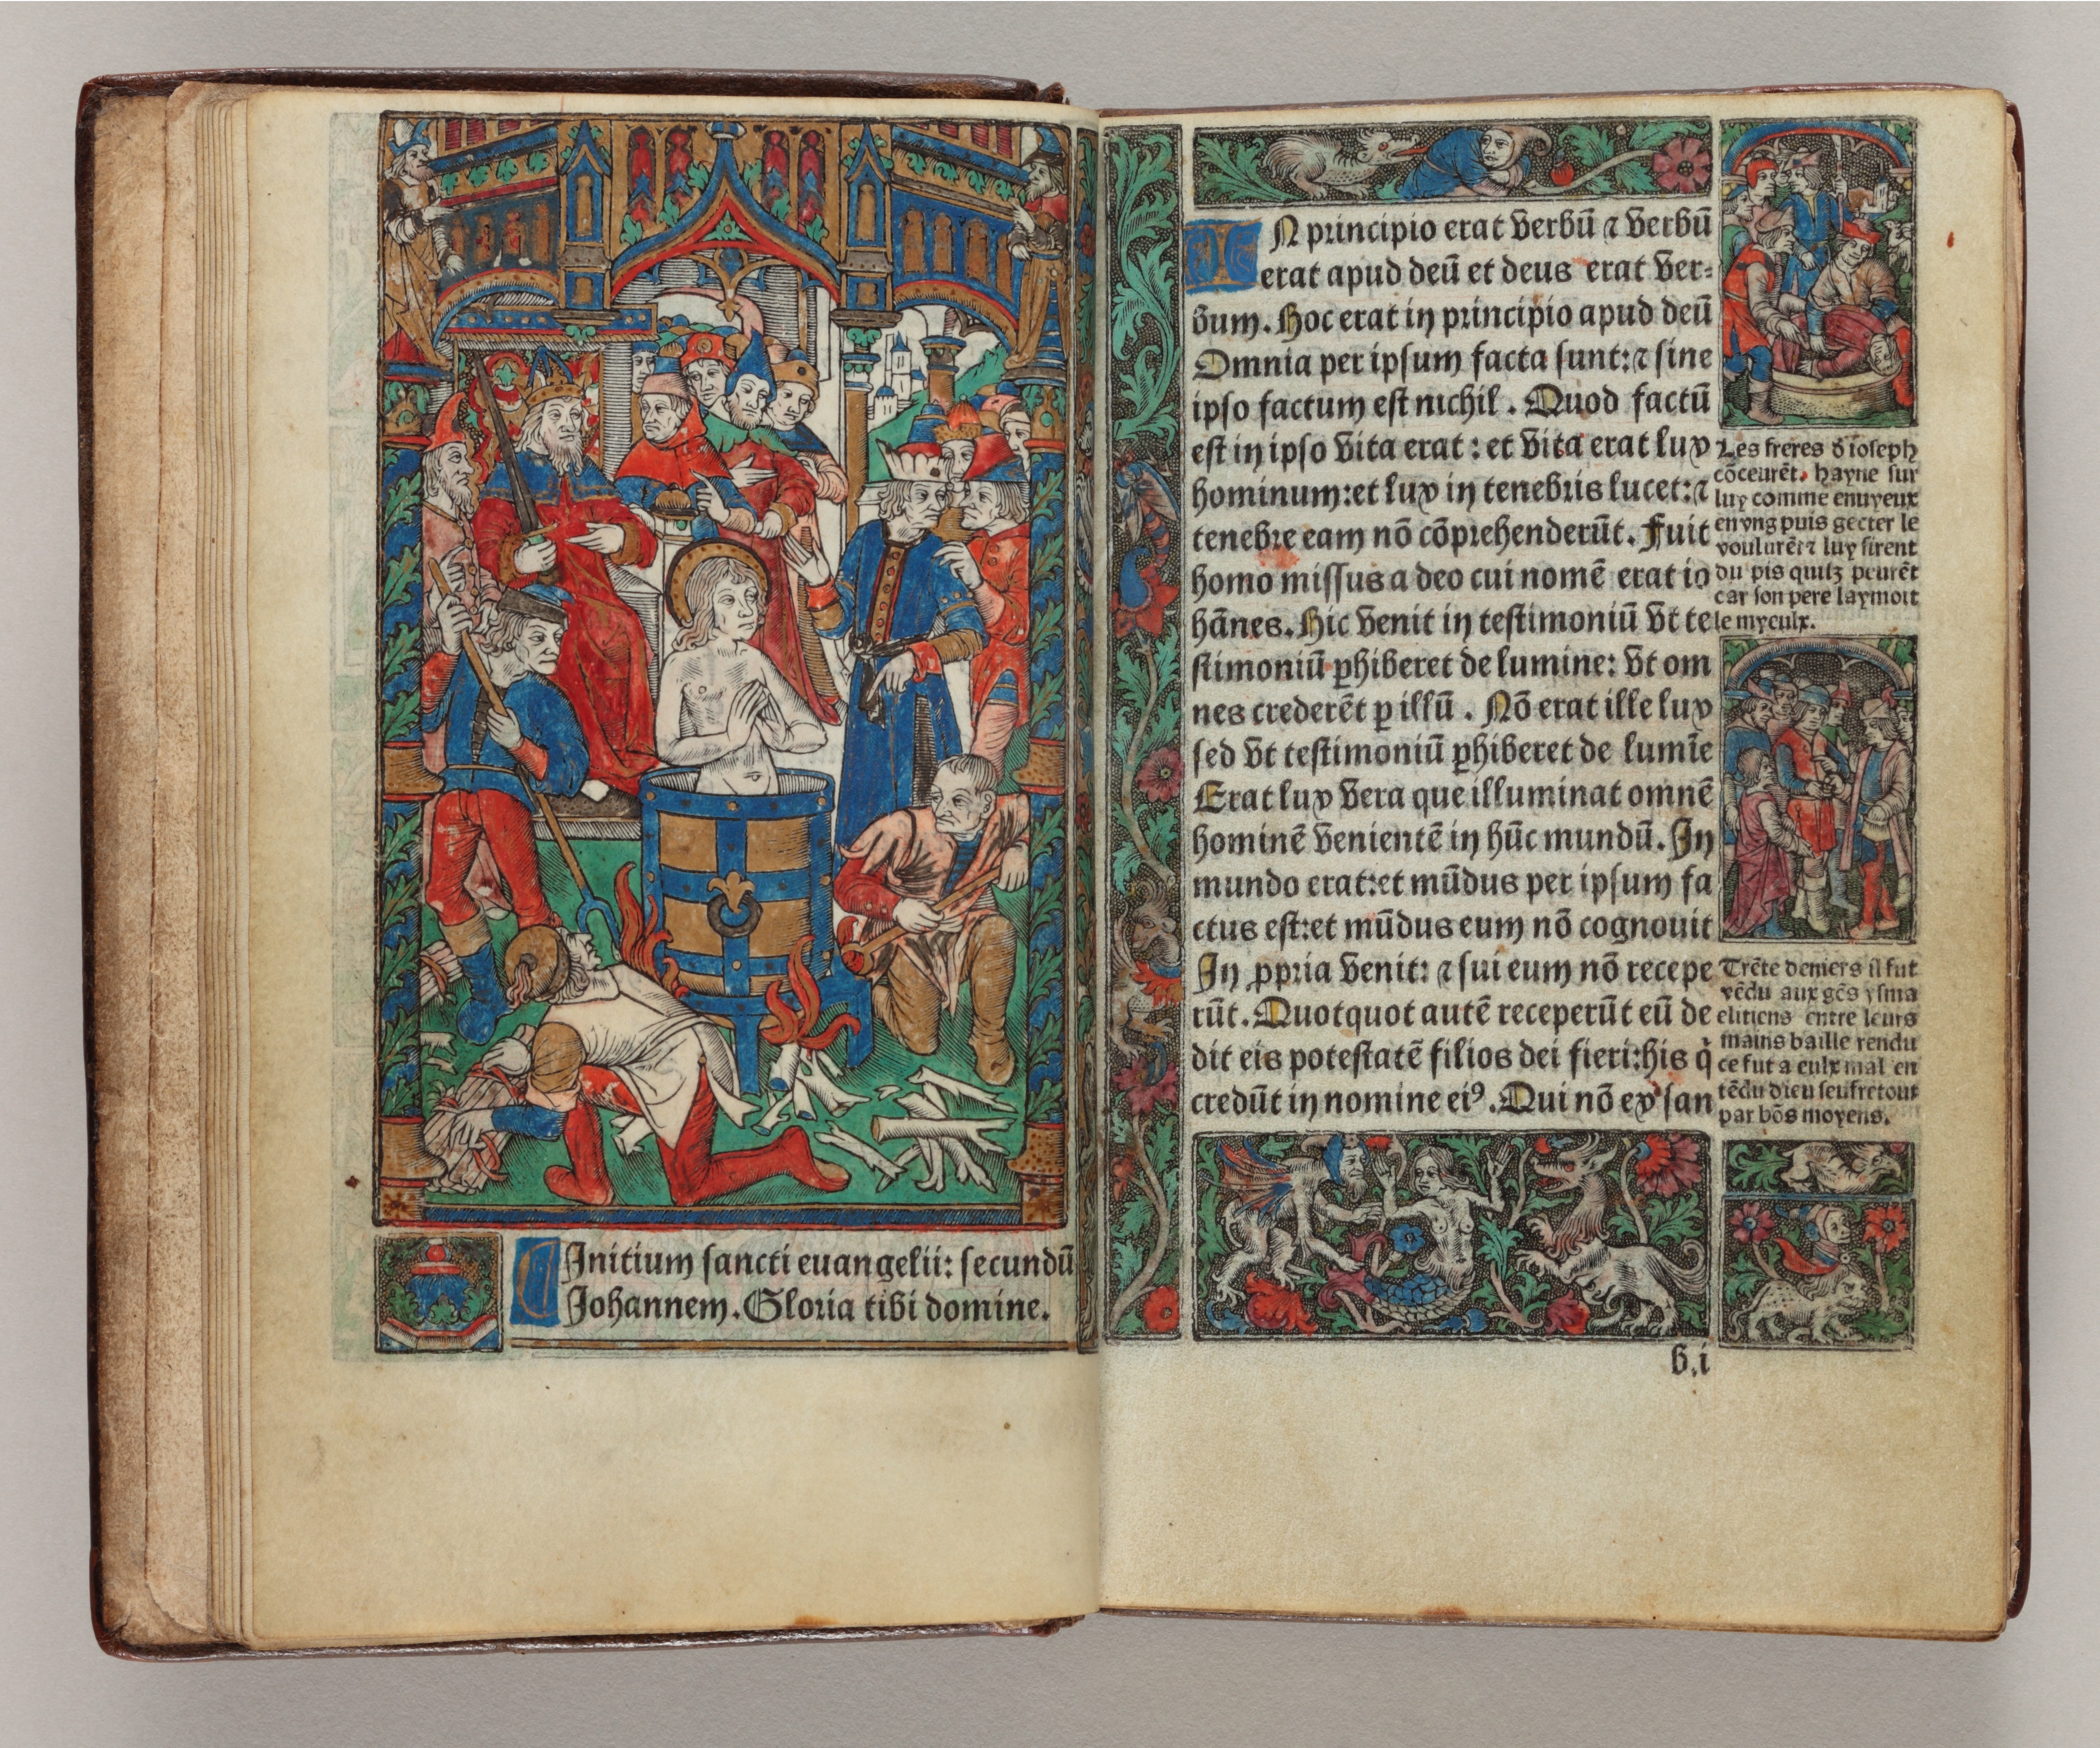 Initium sancti euangelii: secundũ
Johannem. Gloria tibi domine.
IN principio erat verbũ ⁊ verbũ
erat apud deũ et deus erat ver⸗
bum. Hoc erat in principio apud deũ
Omnia per ipsum facta sunt: ⁊ sine
ipso factum est nichil. Quod factũ
est in ipso vita erat: et vita erat lux
hominum: et lux in tenebris lucet: ⁊
tenebre eam nõ cõprehenderũt. Fuit
homo missus a deo cui nomẽ erat io
hãnes. Hic venit in testimoniũ vt te
stimoniũ ꝑhiberet de lumine: vt om
nes crederẽt ꝑ illũ. Nõ erat ille lux
sed vt testimoniũ ꝑhiberet de lumĩe
Erat lux vera que illuminat omnẽ
hominẽ venientẽ in hũc mundũ. In
mundo erat: et mũdus per ipsum fa
ctus est: et mũdus eum nõ cognouit
In ꝓpria venit: ⁊ sui eum nõ recepe
rũt. Quotquot autẽ receperũt eũ de
dit eis potestatẽ filios dei fieri: his q̇
credũt in nomine eiꝰ. Qui nõ ex san
Les freres d̃ ioseph
cõceurẽt. hayne sur
luy comme enuyeux
en vng puis gecter le
voulurẽt ⁊ luy firent
du pis quilz peurẽt
car son pere laymoit
le myeulx.
Trẽte deniers il fut
vẽdu aux gẽs ysma
elitiens entre leurs
mains baille rendu
ce fut a eulx mal en
tẽdu dieu seuffre tout
par bõs moyens.
b.i